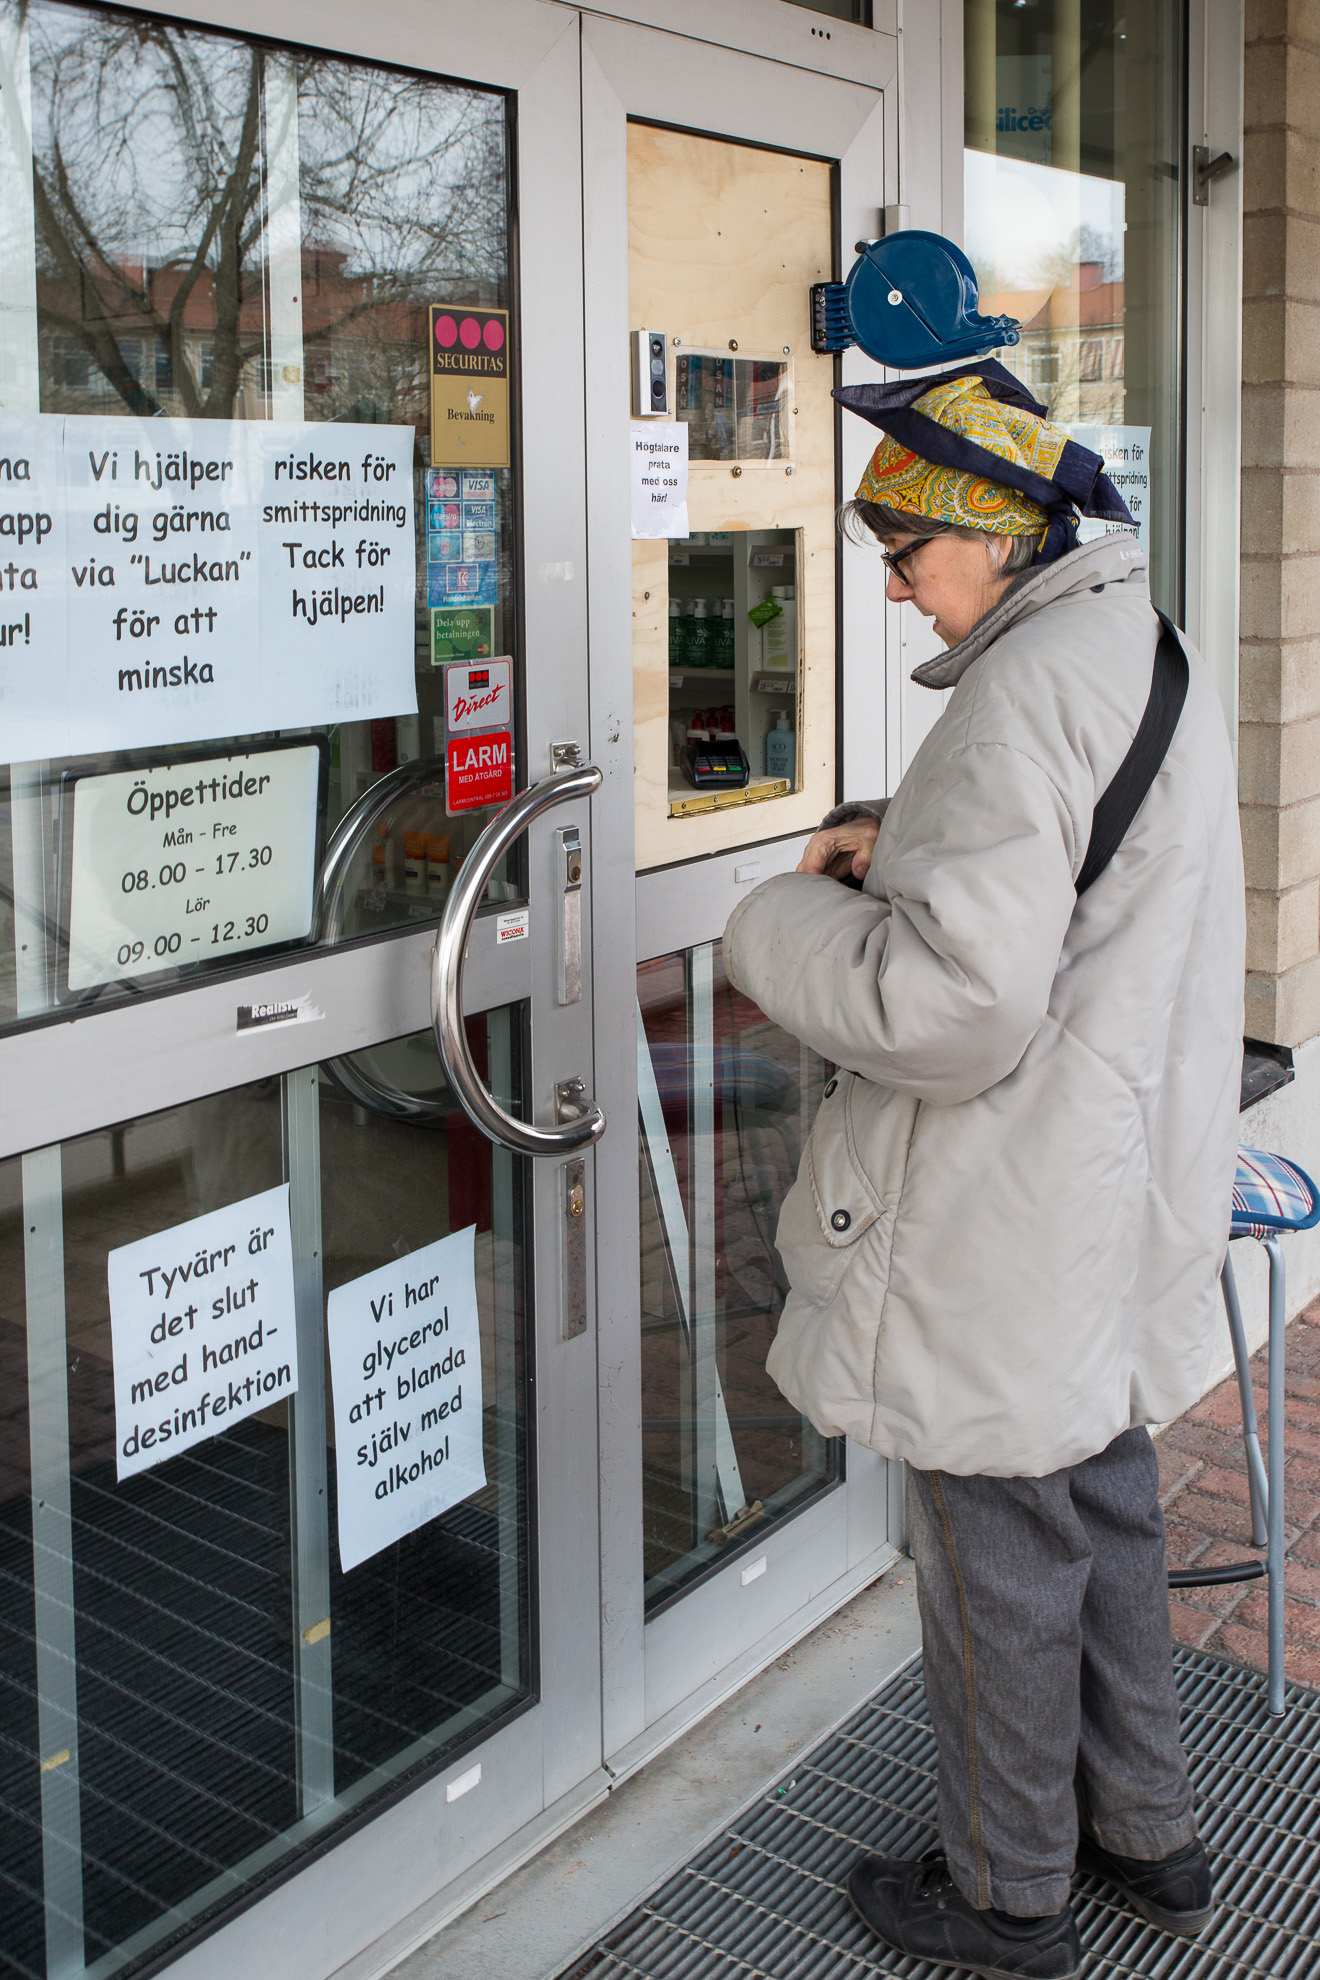 Vi hjälper
dig gärna
via "Luckan"
för att
minska
risken för
smittspridning
Tack för
hjälpen!
Öppettider
Mån - Fre
08.00 - 17.30
Lör
09.00 - 12.30
Tyvärr är
det slut
med hand-
desinfektion
Vi har
glycerol
att blanda
själv med
alkohol
SECURITAS
Bevakning
VISA
Maestro
VISA
Electron
Handelsbanken
Dela upp
betalningen
SECURITAS
Direct
LARM
MED ÅTGÄRD
WICONA
Högtalare
prata
med oss
här!
ACO
risken för
smittspridning
för
hjälpen!